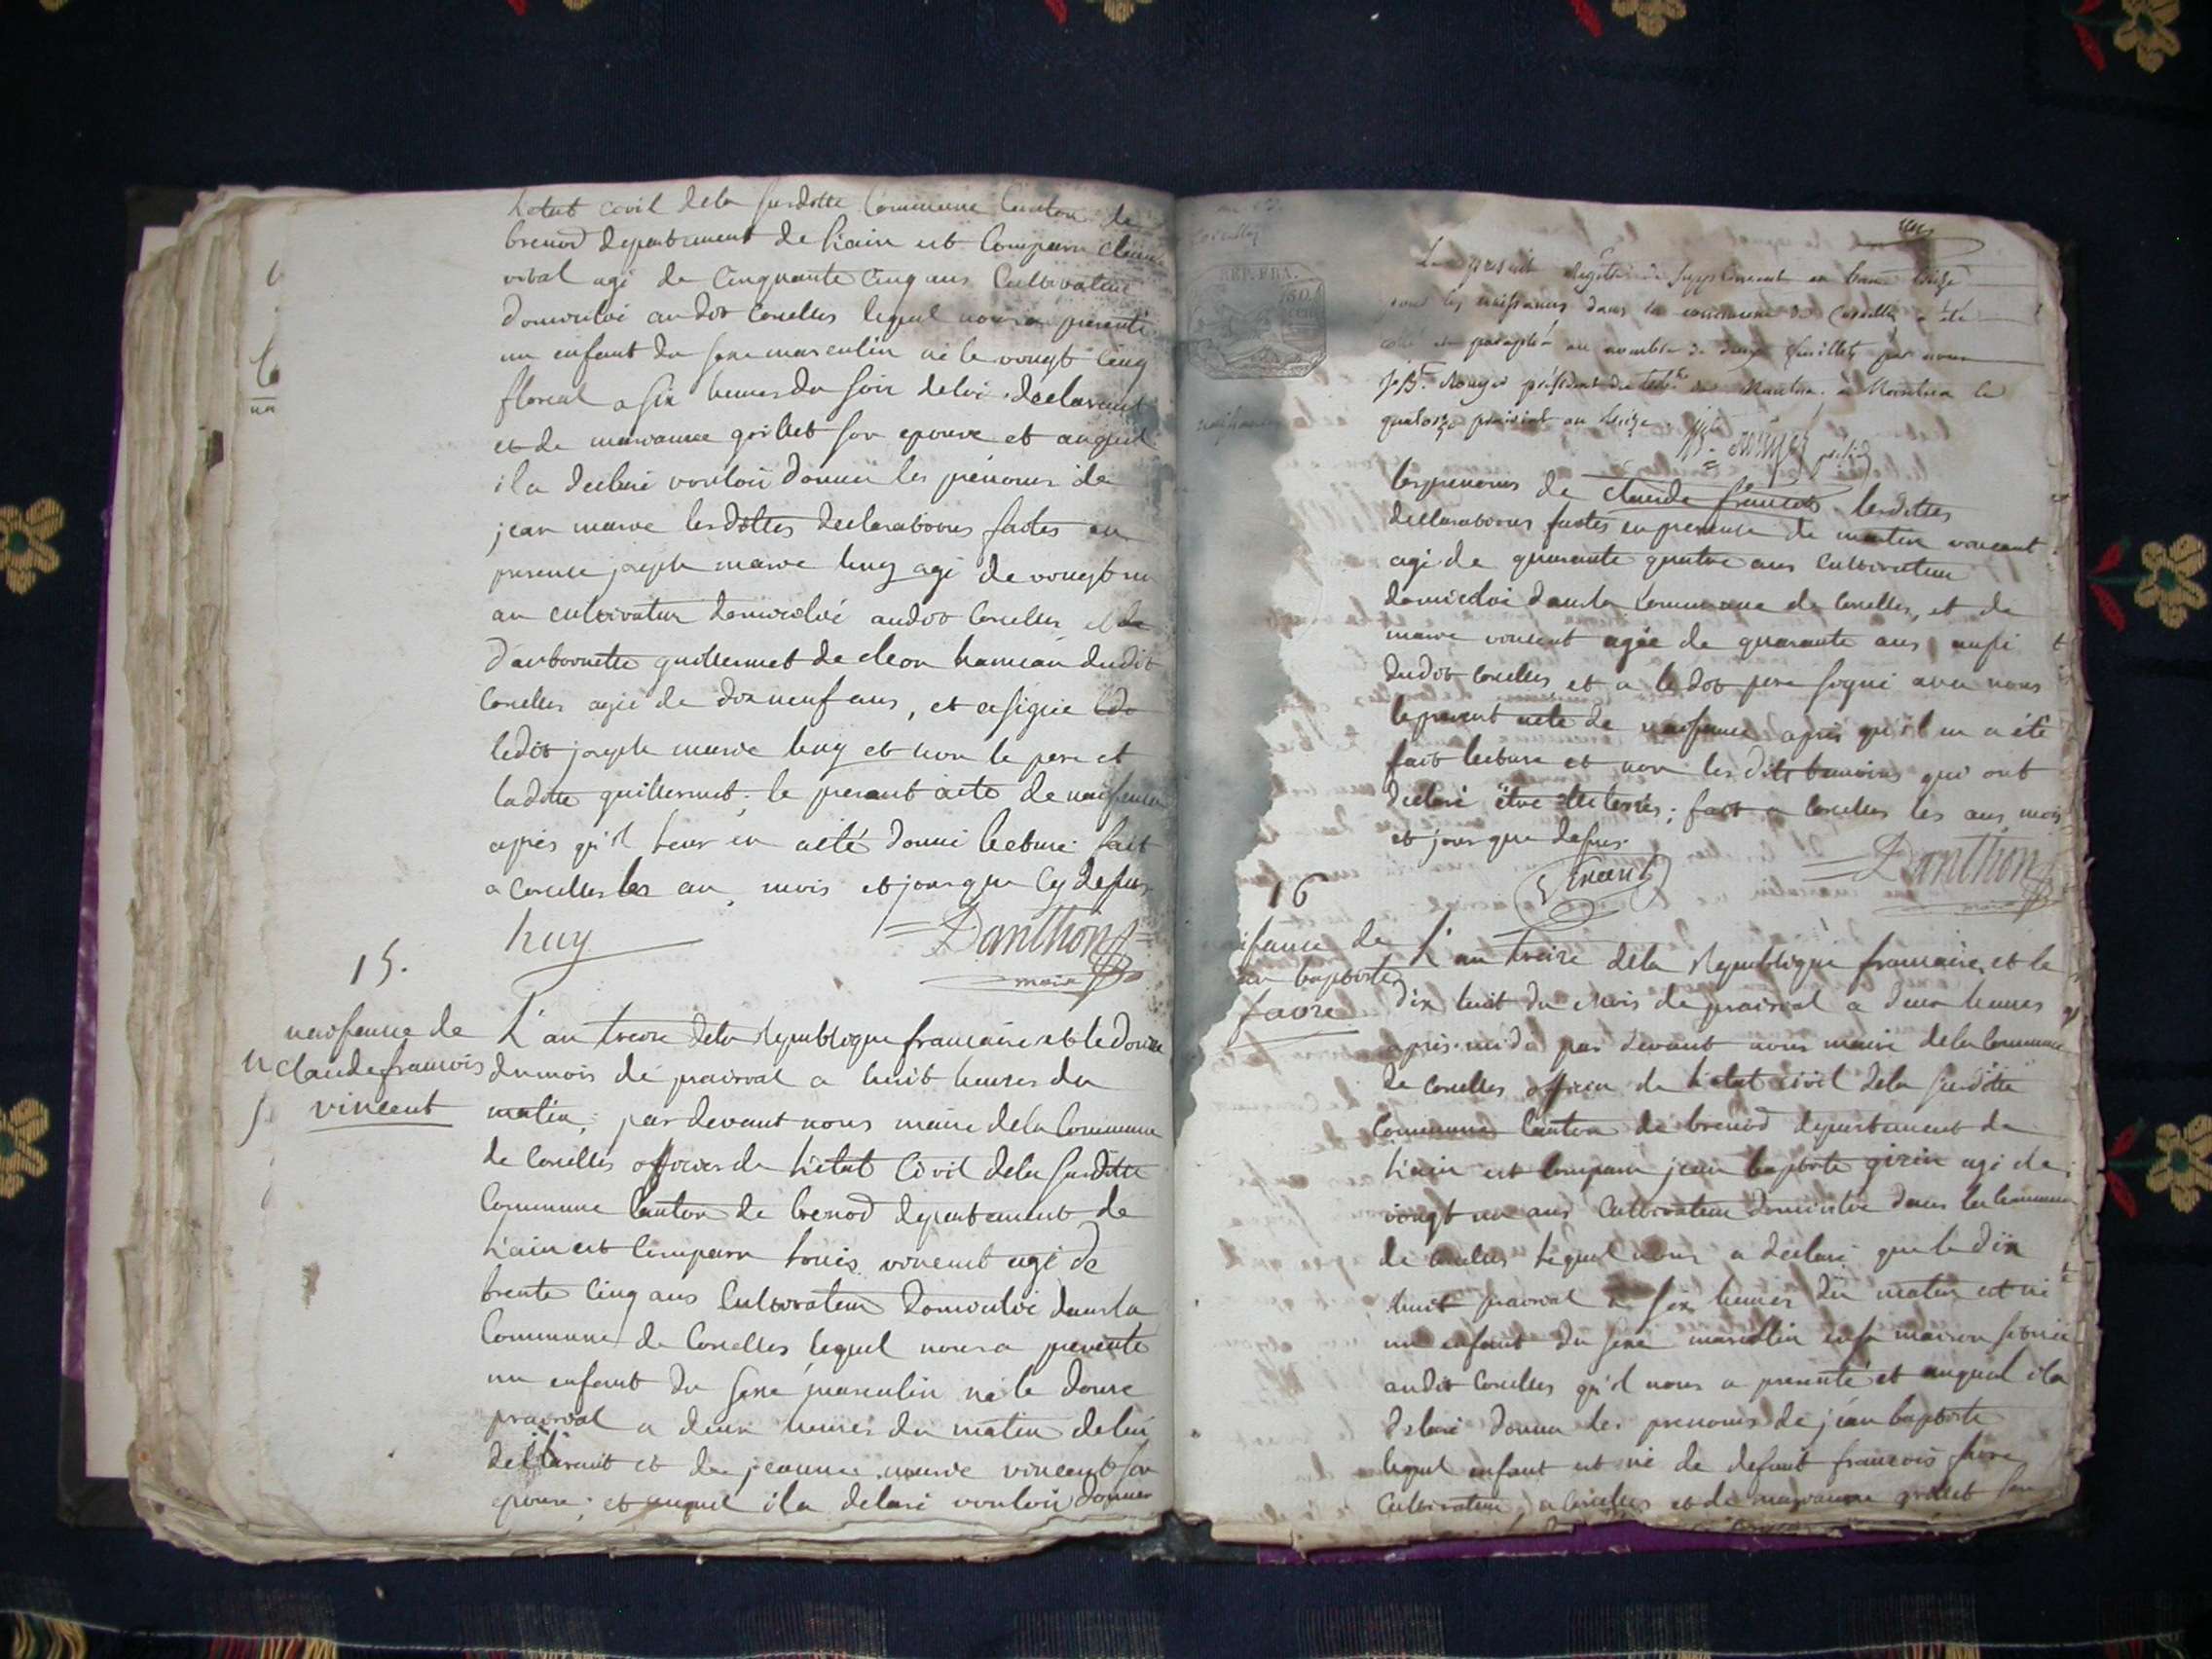 l'etat civil dela susditte Commune Canton de
brenod departement de l'ain est Comparu Claude
vital agé de Cinquante Cinq ans Cultivateur
domicilié au dit Corcelles lequel nous a presenté
un enfant du sexe masculin né le vingt Cinq
floreal a six heures du soir de lui declarant
et de marianne grillet son epouse et auquel
il a declaré vouloir donner les prénoms de
jean marie lesdittes declarations faites en
presence joseph marie huy agé de vingt un
an cultivateur domicilié audit Corcelles et de
d'anthoinette guillermet de cleon hameau dudit
Corcelles agée de dix neuf ans, et a signé
ledit joseph marie huy et non le pere et
laditte guillermet. le present acte de naissance
après qu'il leur en a eté donné lecture fait
a Corcelles les an, mois et jour que Cy dessus
huy
Danthon
maire
15.
naissance de
claude francois
vincent
L'an treize dela Republique francaise et le douze
du mois de prairial a huit heures du
matin, par devant nous maire dela Commune
de Corcelles officier de l'etat Civil dela susditte
Commune Canton de brenod departement de
l'ain est Comparu louis vincent agé de
trente Cinq ans Cultivateur domicilié dans la
Commune de Corcelles lequel nous a presenté
un enfant du sexe masculin né le douze
prairial a deux heures du matin de lui
declarant et de jeanne marie vincent son
epouse; et auquel il a delaré vouloir donner
REP. FRA.
Le présent Registre de supplément en l'an treize
pour les naissances dans la commune de Corcelles a été
coté et paraphé au nombre de deux feuillets par nous
J. Bte. Rouyer président du trib.l de Nantua, à Nantua le
quatorze prairial an treize
naissances
les prenoms de claude francois lesdittes
declarations faites en presence de martin vincent
agé de quarante quatre ans Cultivateur
domicilié dans la Commune de Corcelles, et de
marie vincent agée de quarante ans aussi
dudit Corcelles, et a le dit pere signé avec nous
le present acte de naissance après qu'il en a été
fait lecture et non les dits temoins qui ont
declaré être illeterés; fait a Corcelles les ans, mois
et jour que dessus.
Vincent
Danthon
maire
16
issance de
an baptiste
favre
L'an treize dela Republique francaise, et le
dix huit du mois de prairial a deux heures
après-midi par devant nous maire dela Commune
de Corcelles officier de l'etat civil dela susditte
Commune Canton de brenod departement de
l'ain est Comparu jean baptiste girin agé de
vingt un ans Cultivateur domicilié dans la Commune
de Corcelles lequel nous a declaré que le dix
huit prairial a six heures du matin est né
un enfant du sexe masculin en sa maison scituée
audit Corcelles qu'il nous a presenté et auquel il a
delaré donner les prenoms de jean baptiste
lequel enfant est né de defunt francois favre
Cultivateur a Corcelles et de marianne grillet son